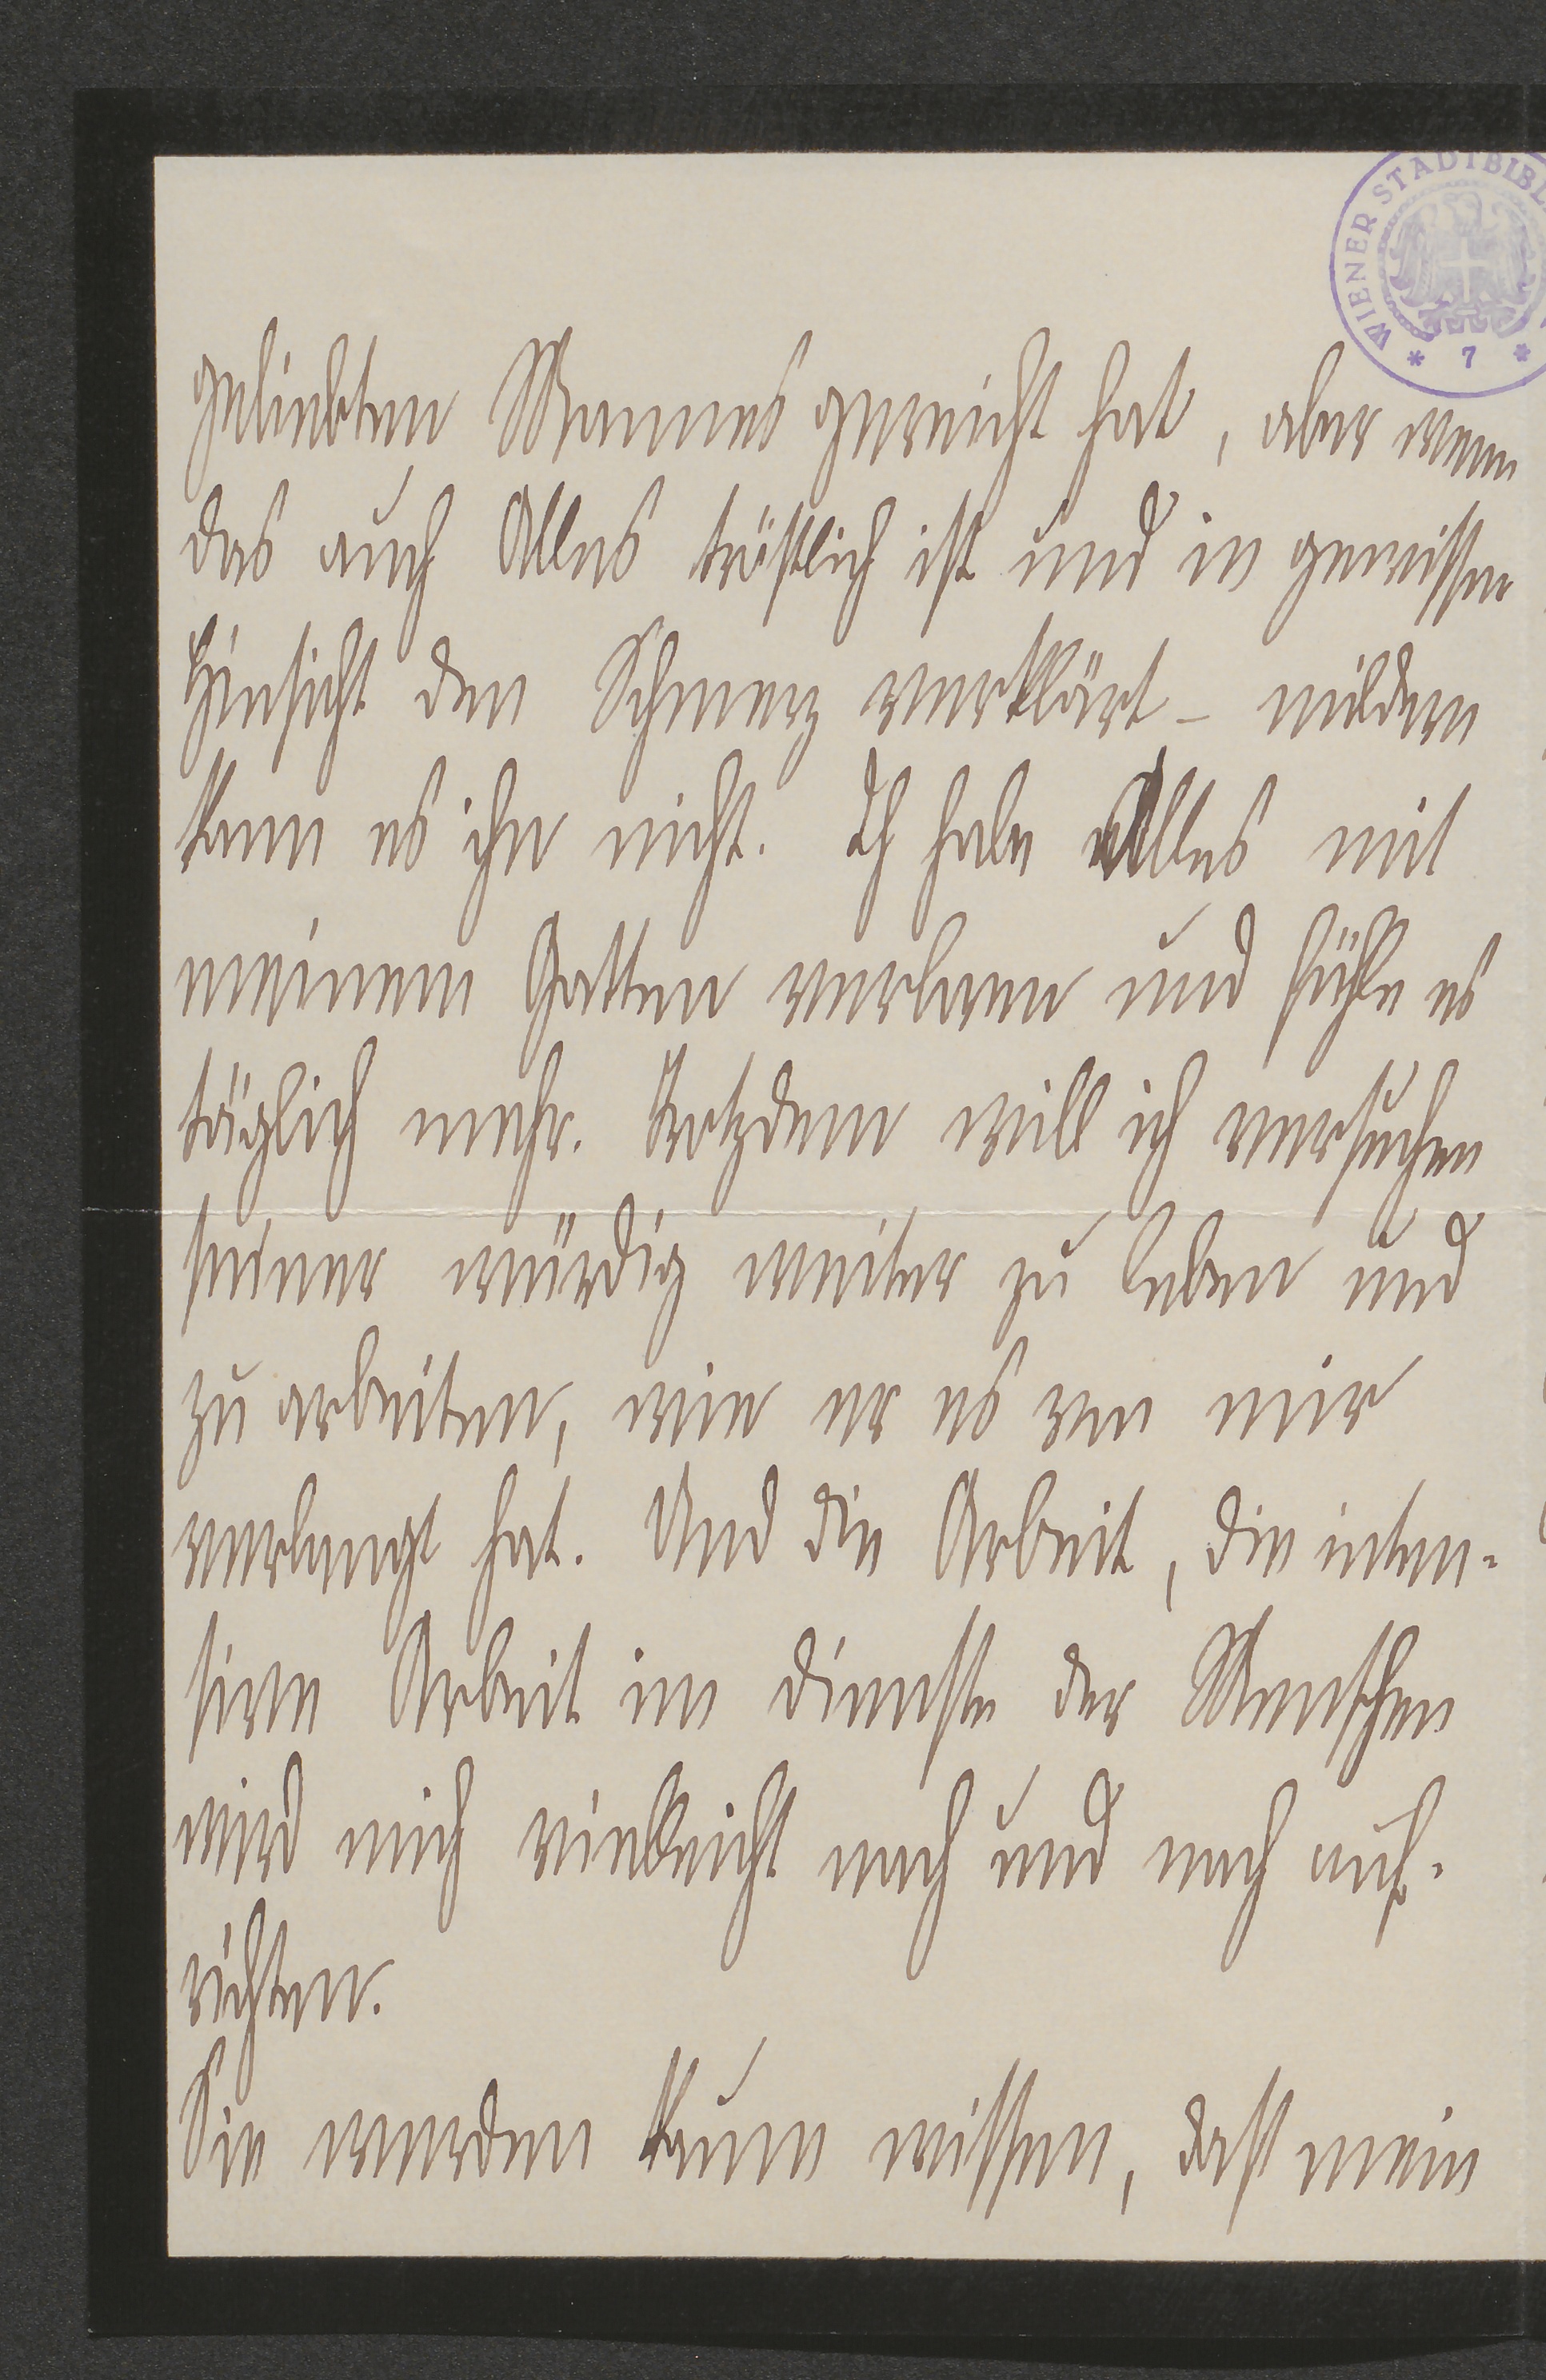 WIENER STADTBIBL
* 7 *
geliebten Mannes gereicht hat, aber wenn
das auch Alles tröstlich ist und in gewisser
Hinsicht den Schmerz verklärt – mildern
kann es ihn nicht. Ich habe Alles mit
meinem Gatten verloren und fühle es
täglich mehr. Trotzdem will ich versuchen
seiner würdig weiter zu leben und
zu arbeiten, wie er es von mir
verlangt hat. Und die Arbeit, die inten-
sive Arbeit im Dienste der Menschen
wird mich vielleicht nach und nach auf-
richten.
Sie werden kaum wissen, dass mein